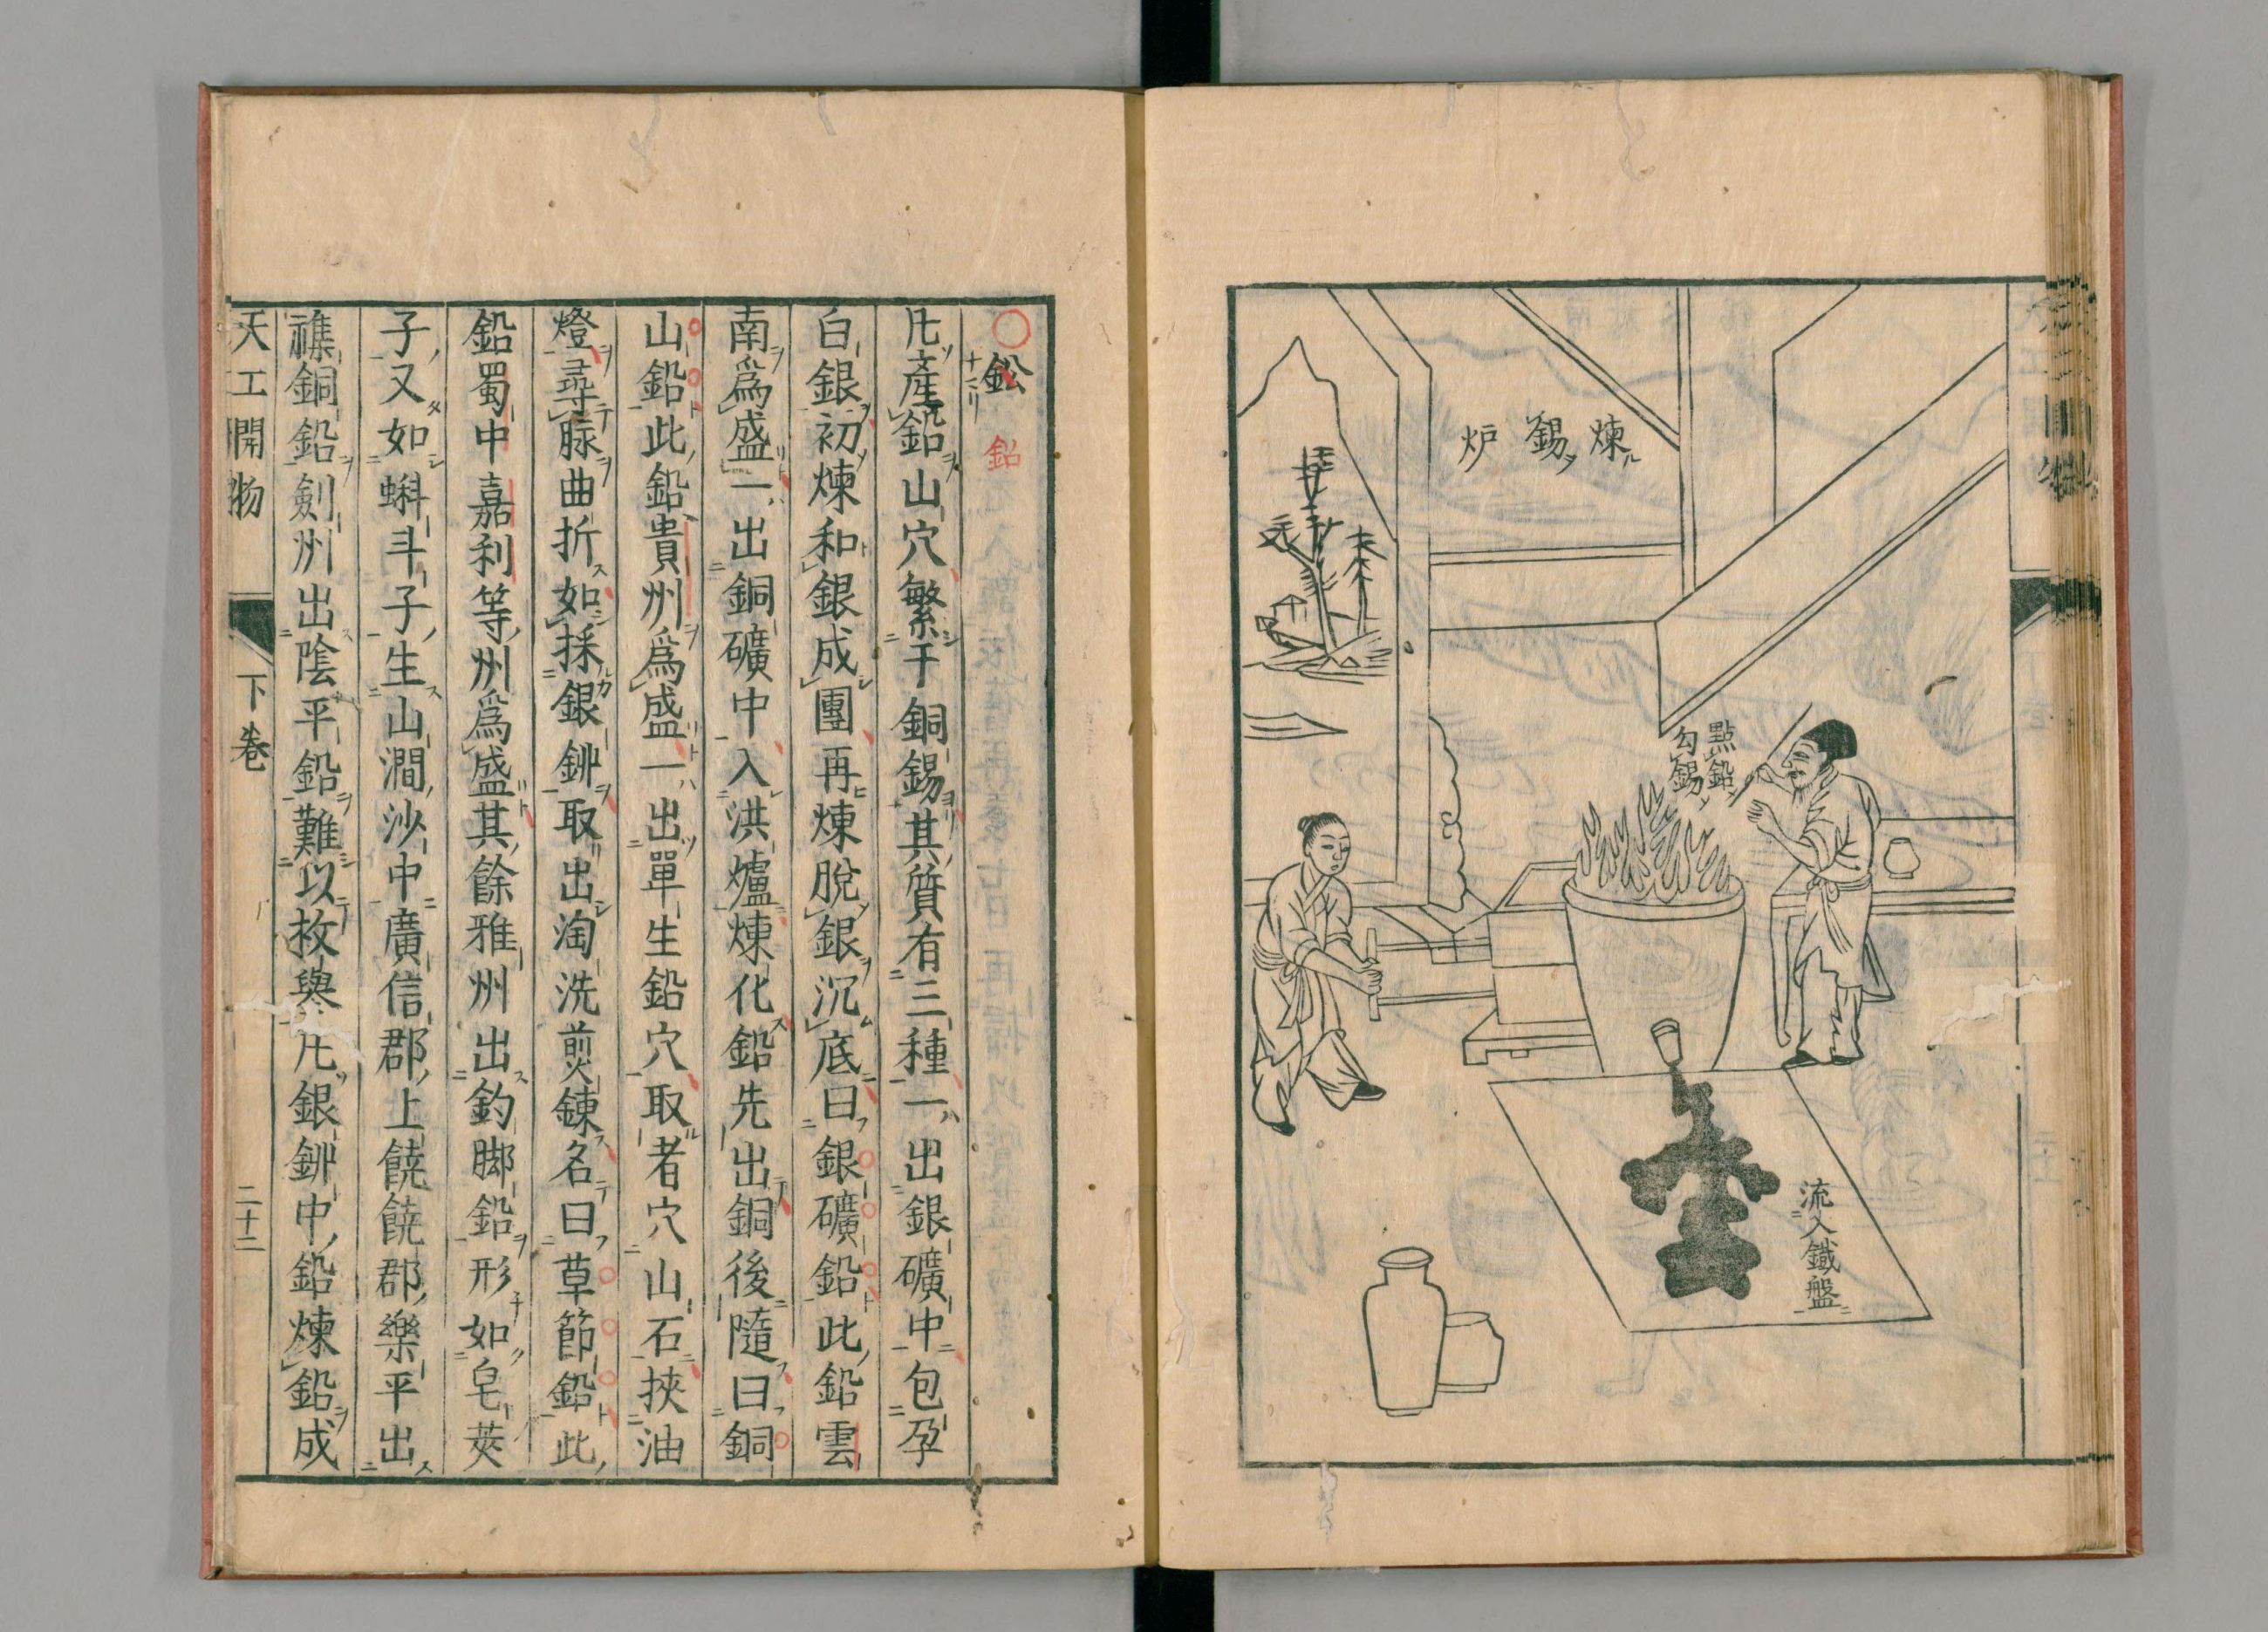 煉錫炉
點鉛
勾錫
流入鐵盤
鈆
鉛
凡產鉛山穴繁于銅錫其質有三種一出銀礦中包孕
白銀初煉和銀成團再煉脫銀沉底曰銀礦鉛此鉛雲
南爲盛一出銅礦中入洪爐煉化鉛先出銅後隨曰銅
山鉛此鉛貴州爲盛一出單生鉛穴取者穴山石挾油
燈尋脉曲折如採銀鉚取出淘洗煎鍊名曰草節鉛此
鉛蜀中嘉利等州爲盛其餘雅州出釣脚鉛形如皂莢
子又如蝌斗子生山澗沙中廣信郡上饒饒郡樂平出
襍銅鉛劍州出陰平鉛難以枚舉凡銀鉚中鉛煉鉛成
天工開物
下巻
二十二